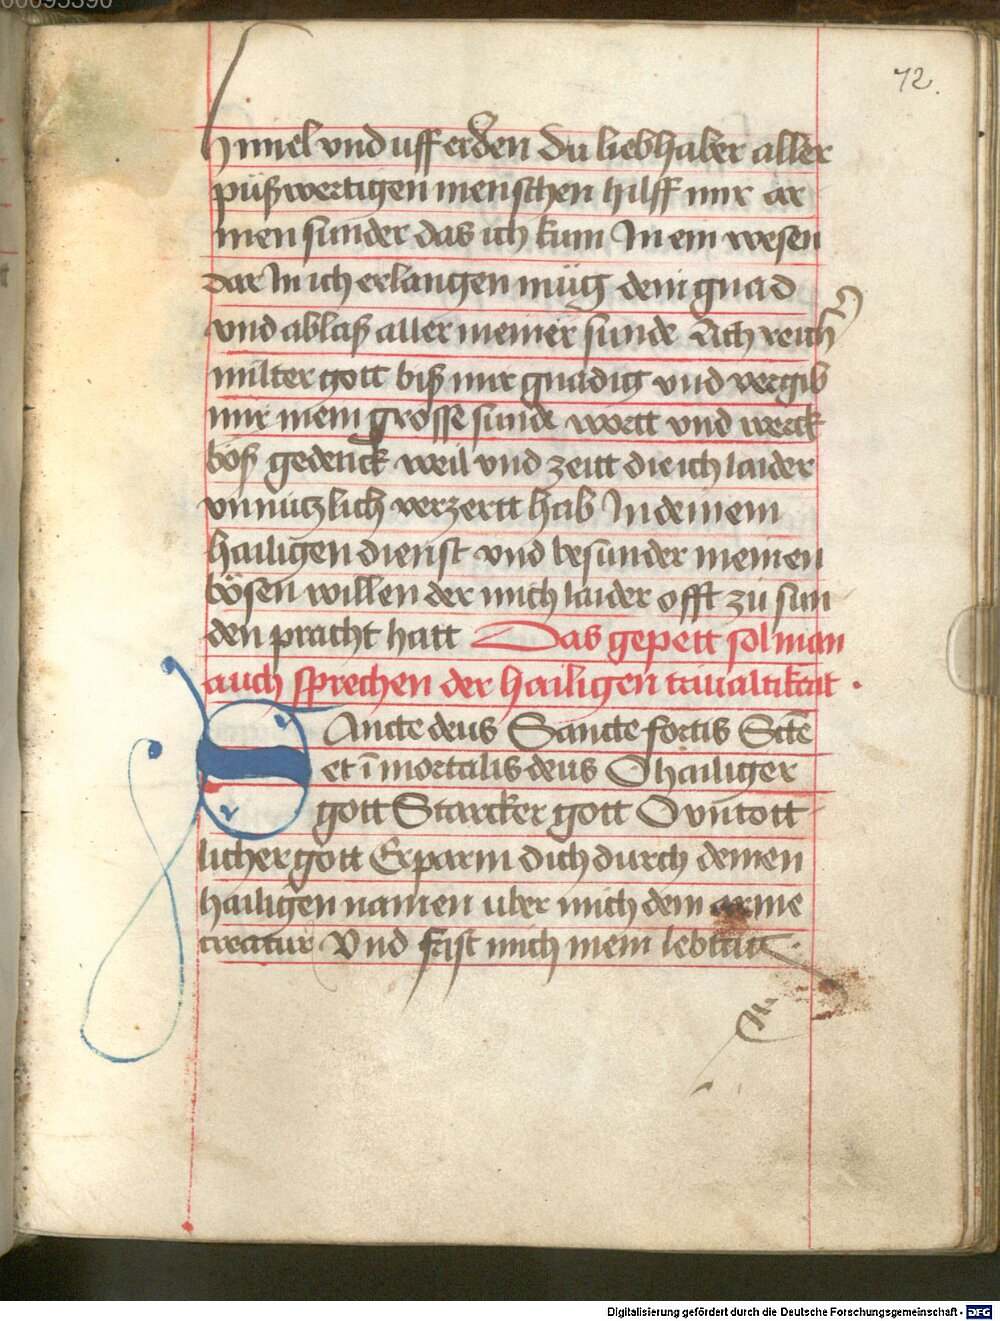 00095390
72.
himel vnd uff erden Du liebhaber aller
püßwertigen menschen hilff mir ar
men sunder das ich kum In ein wesen
dar In ich erlangen müg dein gnad
vnd ablaß aller meiner sunde Ach reich
milter gott biß mir gnadig vnd vergib
mir mein grosse sunde wortt vnd werck
böß gedenck weil vnd zeitt die ich laider
vnnützlich verzertt hab In deinem
hailigen dienst vnd besunder meinen
bösen willen der mich laider offt zu sun
den pracht hatt Das gepett sol man
auch sprechen der hailigen triualtikait .
Sancte deus Sancte fortis Scte
et īmortalis deus O hailiger
gott Starcker gott O vntott
licher gott Erparm dich durch deinen
hailigen namen uber mich dein arme
creatur Vnd frist mich mein lebttag
Digitalisierung gefördert durch die Deutsche Forschungsgemeinschaft - DFG